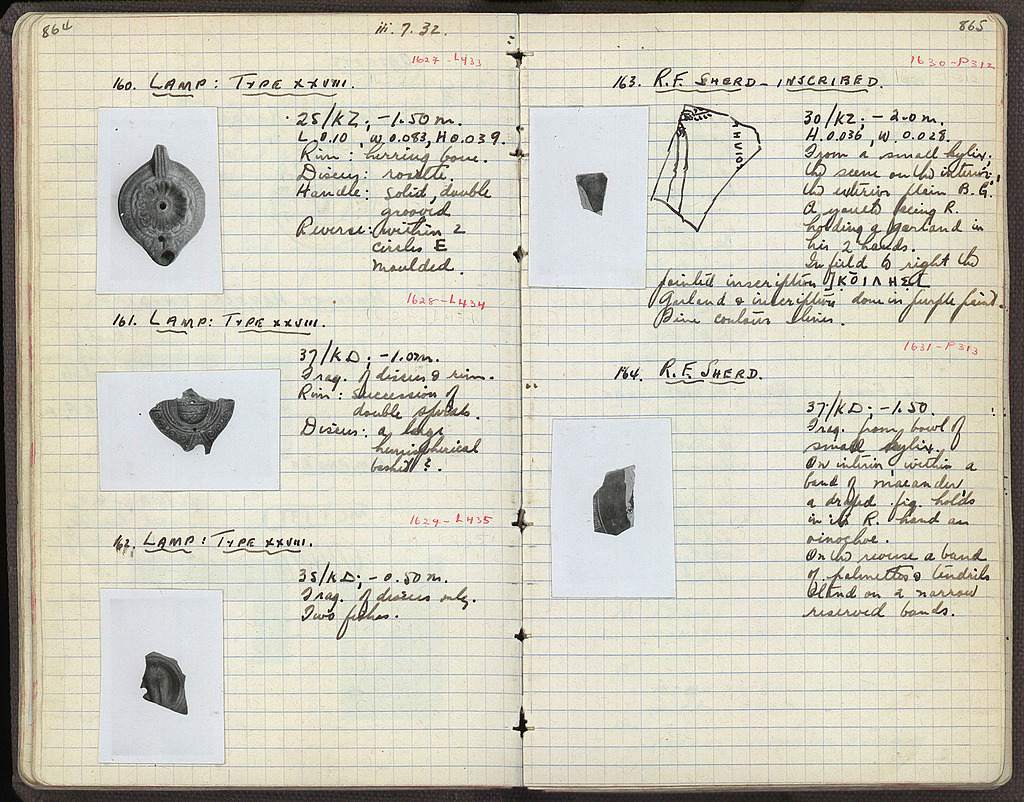 864
iii. 7. 32.
1627 - L433
160. LAMP: TYPE XXVIII.
25/KZ; -1.50 m.
L 0.10, W 0.083, H 0.039.
Rim: herring bone.
Discus: rosette.
Handle: solid, double
grooved
Reverse: within 2
circles E
moulded.
1628 - L434
161. LAMP: TYPE XXVIII.
37/KD; -1.0 m.
Frag. of discus & rim.
Rim: succession of
double spirals.
Discus: a large
hemispherical
basket?
1629 - L435
162. LAMP: TYPE XXVIII.
35/KD; -0.80 m.
Frag. of discus only.
Two fishes.
865
1630 - P312
163. R.F. SHERD - INSCRIBED.
30/KZ; -2.0 m.
H. 0.036, W. 0.028.
From a small kylix;
the scene on the interior,
the exterior plain B.G.
A youth facing R.
holding a garland in
his 2 hands.
In field to right the
painted inscription
Garland & inscription done in purple paint.
Fine contour lines.
1631 - P313
164. R.F. SHERD.
37/KD; -1.50.
Frag. from bowl of
small kylix.
On interior, within a
band of maeander,
a draped fig. holds
in its R. hand an
oinochoe.
On the reverse a band
of palmettes & tendrils
stand on 2 narrow
reserved bands.